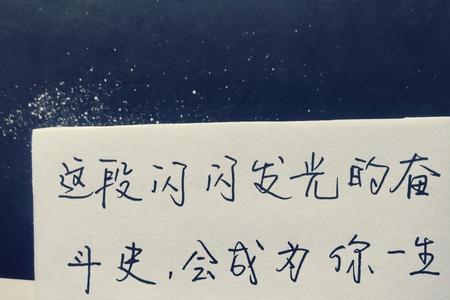 这段闪闪发光的奋
斗史，会成为你一生